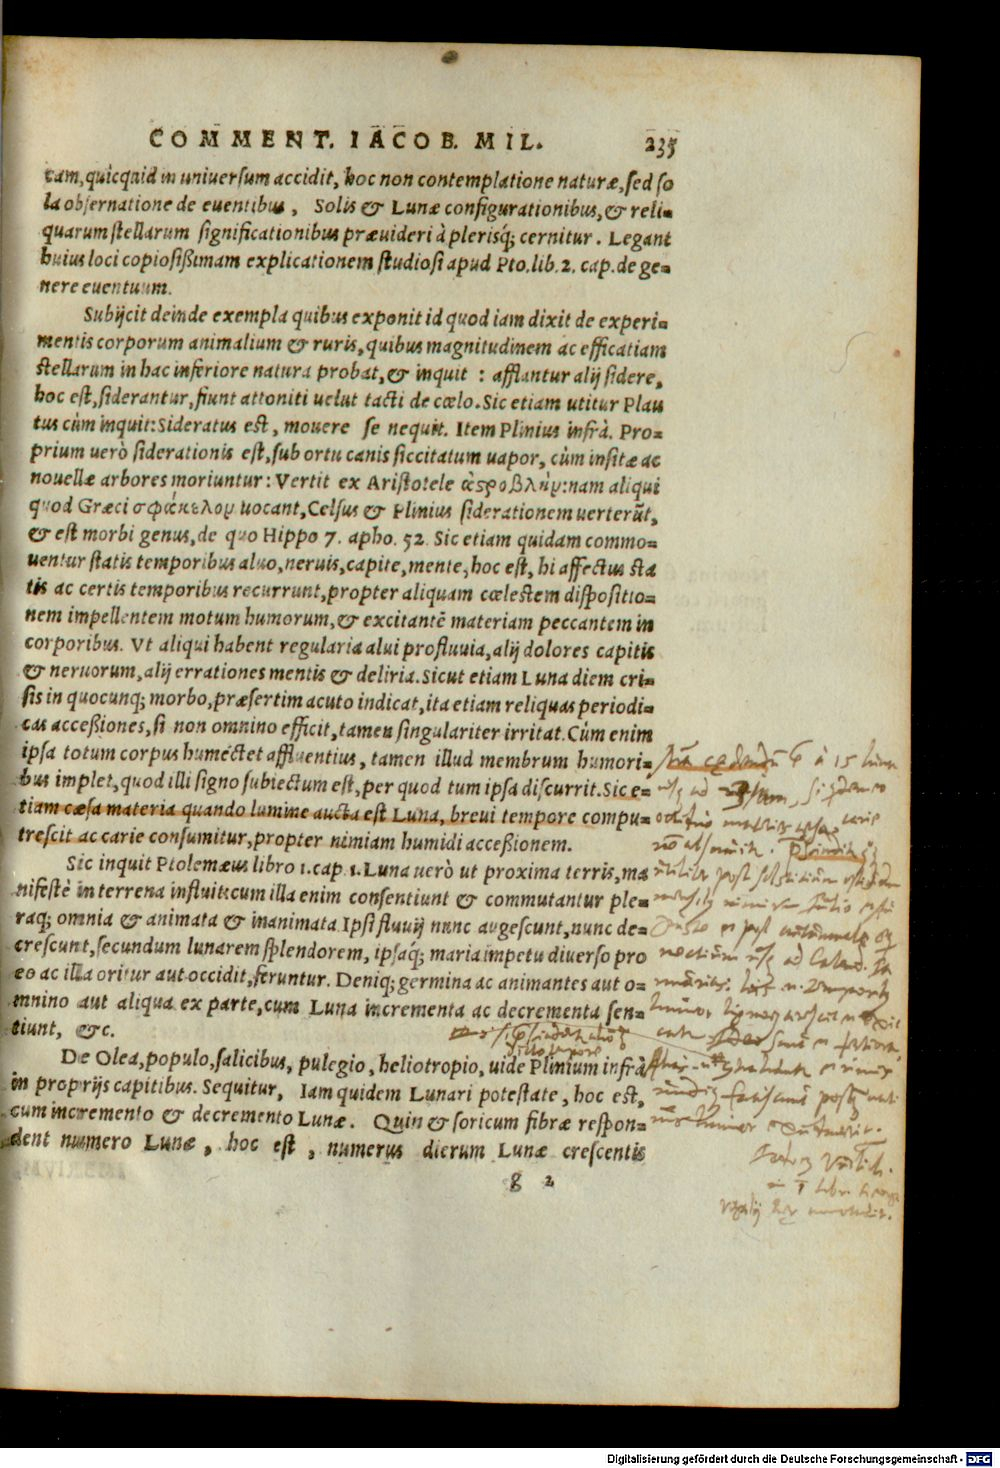 COMMENT. IACOB. MIL. 235
tam, quicquid in uniuersum accidit, hoc non contemplatione naturæ, sed so
la obseruatione de euentibus, Solis & Lunæ configurationibus, & reli-
quarum stellarum significationibus præuideri à plerisq́; cernitur. Legant
huius loci copiosißimam explicationem studiosi apud Pto. lib. 2. cap. de ge-
nere euentuum.
Subijcit deinde exempla quibus exponit id quod iam dixit de experi-
mentis corporum animalium & ruris, quibus magnitudinem ac efficatiam
stellarum in hac inferiore natura probat, & inquit : afflantur alij sidere,
hoc est, siderantur, fiunt attoniti uelut tacti de cœlo. Sic etiam utitur Plau
tus cùm inquit: Sideratus est, mouere se nequit. Item Plinius infrà. Pro-
prium uerò siderationis est, sub ortu canis siccitatum uapor, cùm insitæ ac
nouellæ arbores moriuntur: Vertit ex Aristotele ἀστροβλὴν: nam aliqui
quod Græci σφάκελον uocant, Celsus & Plinius siderationem uerterũt,
& est morbi genus, de quo Hippo 7. apho. 52. Sic etiam quidam commo-
uentur statis temporibus aluo, neruis, capite, mente, hoc est, hi affectus sta
tis ac certis temporibus recurrunt, propter aliquam cœlestem dispositio-
nem impellentem motum humorum, & excitantẽ materiam peccantem in
corporibus. Vt aliqui habent regularia alui profluuia, alij dolores capitis
& neruorum, alij errationes mentis & deliria. Sicut etiam Luna diem cri-
sis in quocunq; morbo, præsertim acuto indicat, ita etiam reliquas periodi-
cas acceßiones, si non omnino efficit, tamen singulariter irritat. Cùm enim
ipsa totum corpus humectet affluentius, tamen illud membrum humori-
bus implet, quod illi signo subiectum est, per quod tum ipsa discurrit. Sic e-
tiam cæsa materia quando lumine aucta est Luna, breui tempore compu-
trescit ac carie consumitur, propter nimiam humidi acceßionem.
Sic inquit Ptolemæus libro 1. cap. 1. Luna uerò ut proxima terris, ma
nifestè in terrena influit: cum illa enim consentiunt & commutantur ple-
raq; omnia & animata & inanimata Ipsi fluuij nunc augescunt, nunc de-
crescunt, secundum lunarem splendorem, ipsaq́; maria impetu diuerso pro
eo ac illa oritur aut occidit, feruntur. Deniq; germina ac animantes aut o-
mnino aut aliqua ex parte, cum Luna incrementa ac decrementa sen-
tiunt, &c.
De Olea, populo, salicibus, pulegio, heliotropio, uide Plinium infrà
in proprijs capitibus. Sequitur, Iam quidem Lunari potestate, hoc est,
cum incremento & decremento Lunæ. Quin & soricum fibræ respon-
dent numero Lunæ, hoc est, numerus dierum Lunæ crescentis
g 2
à 15 luna
ad
carie
post
ad Calend.
Digitalisierung gefördert durch die Deutsche Forschungsgemeinschaft - DFG